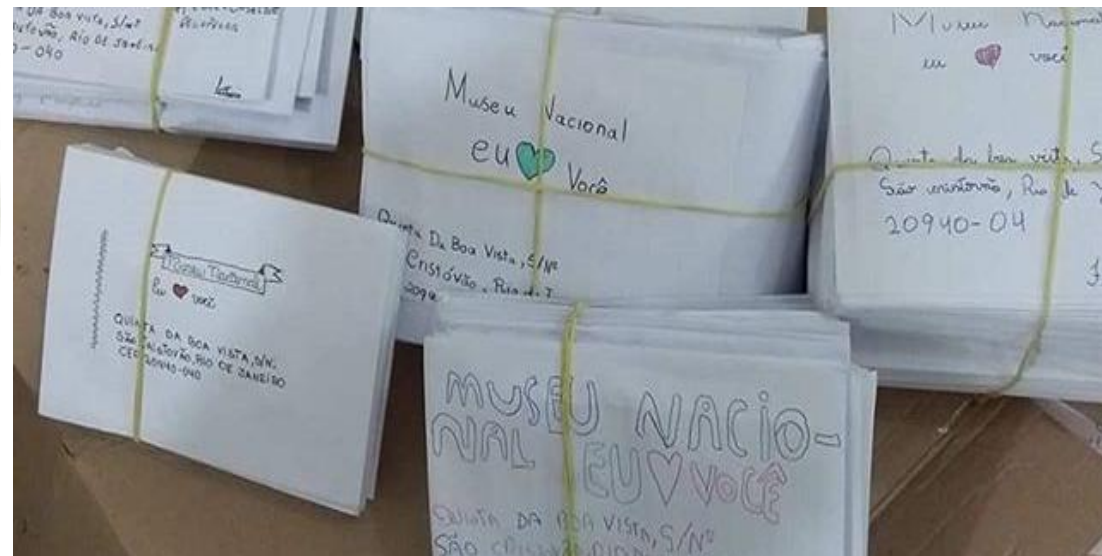 DA BOA VISTA, S/Nº
RIO DE JANEI
-040
Museu Nacional
eu você
Quinta da boa vista, S
São cristovão, Rio de J
20940-04
Museu Nacional
eu Você
Quinta Da Boa Vista, S/Nº
Cristóvão, Rio de J
2094
Museu Nacional
Eu você
QUINTA DA BOA VISTA, S/N.
SÃO CRISTOVÃO, RIO DE JANEIRO
CEP 20940-040
MUSEU NACIO-
NAL EU VOCÊ
QUINTA DA BOA VISTA, S/Nº
SÃO